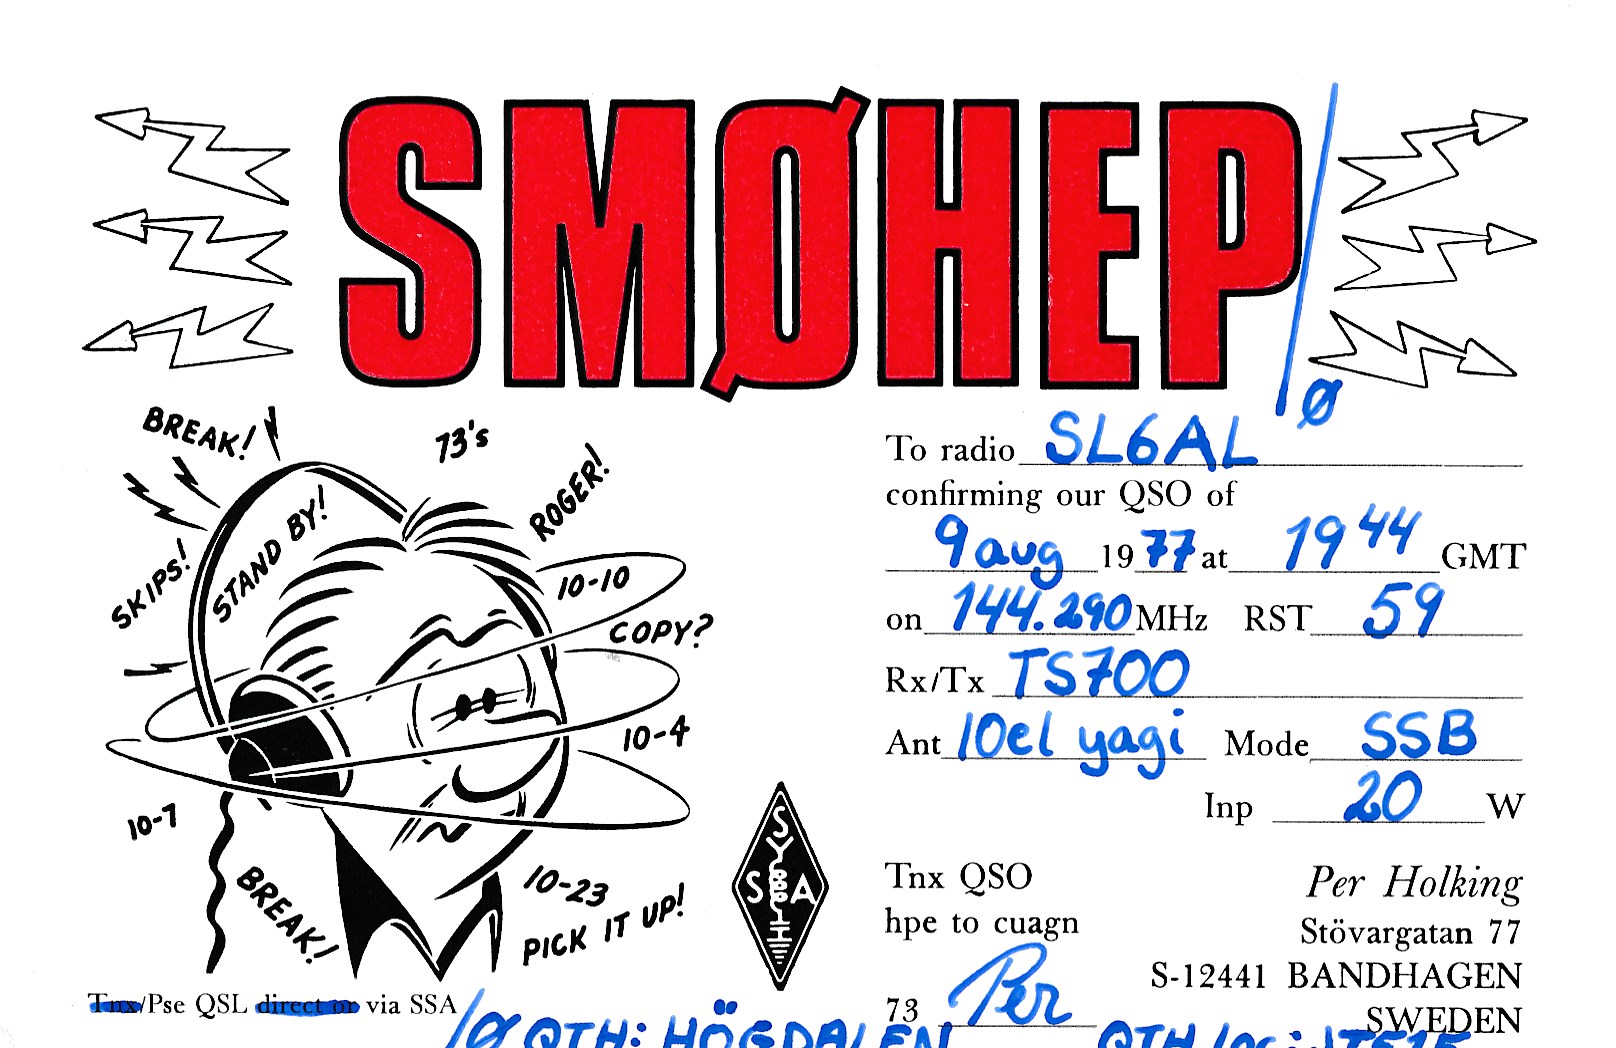 SMØHEP/Ø
BREAK!
73's
ROGER!
STAND BY!
SKIPS!
10-10
COPY?
10-4
10-7
BREAK!
10-23
PICK IT UP!
SSA
To radio SL6AL
confirming our QSO of
9 aug 1977 at 19 44 GMT
on 144.290 MHz RST 59
Rx/Tx TS700
Ant 10el yagi Mode SSB
Inp 20 W
Tnx QSO
hpe to cuagn
73 Per
Per Holking
Stövargatan 77
S-12441 BANDHAGEN
SWEDEN
Tnx/Pse QSL direct or via SSA
/Ø QTH: HÖGDALEN QTH loc: